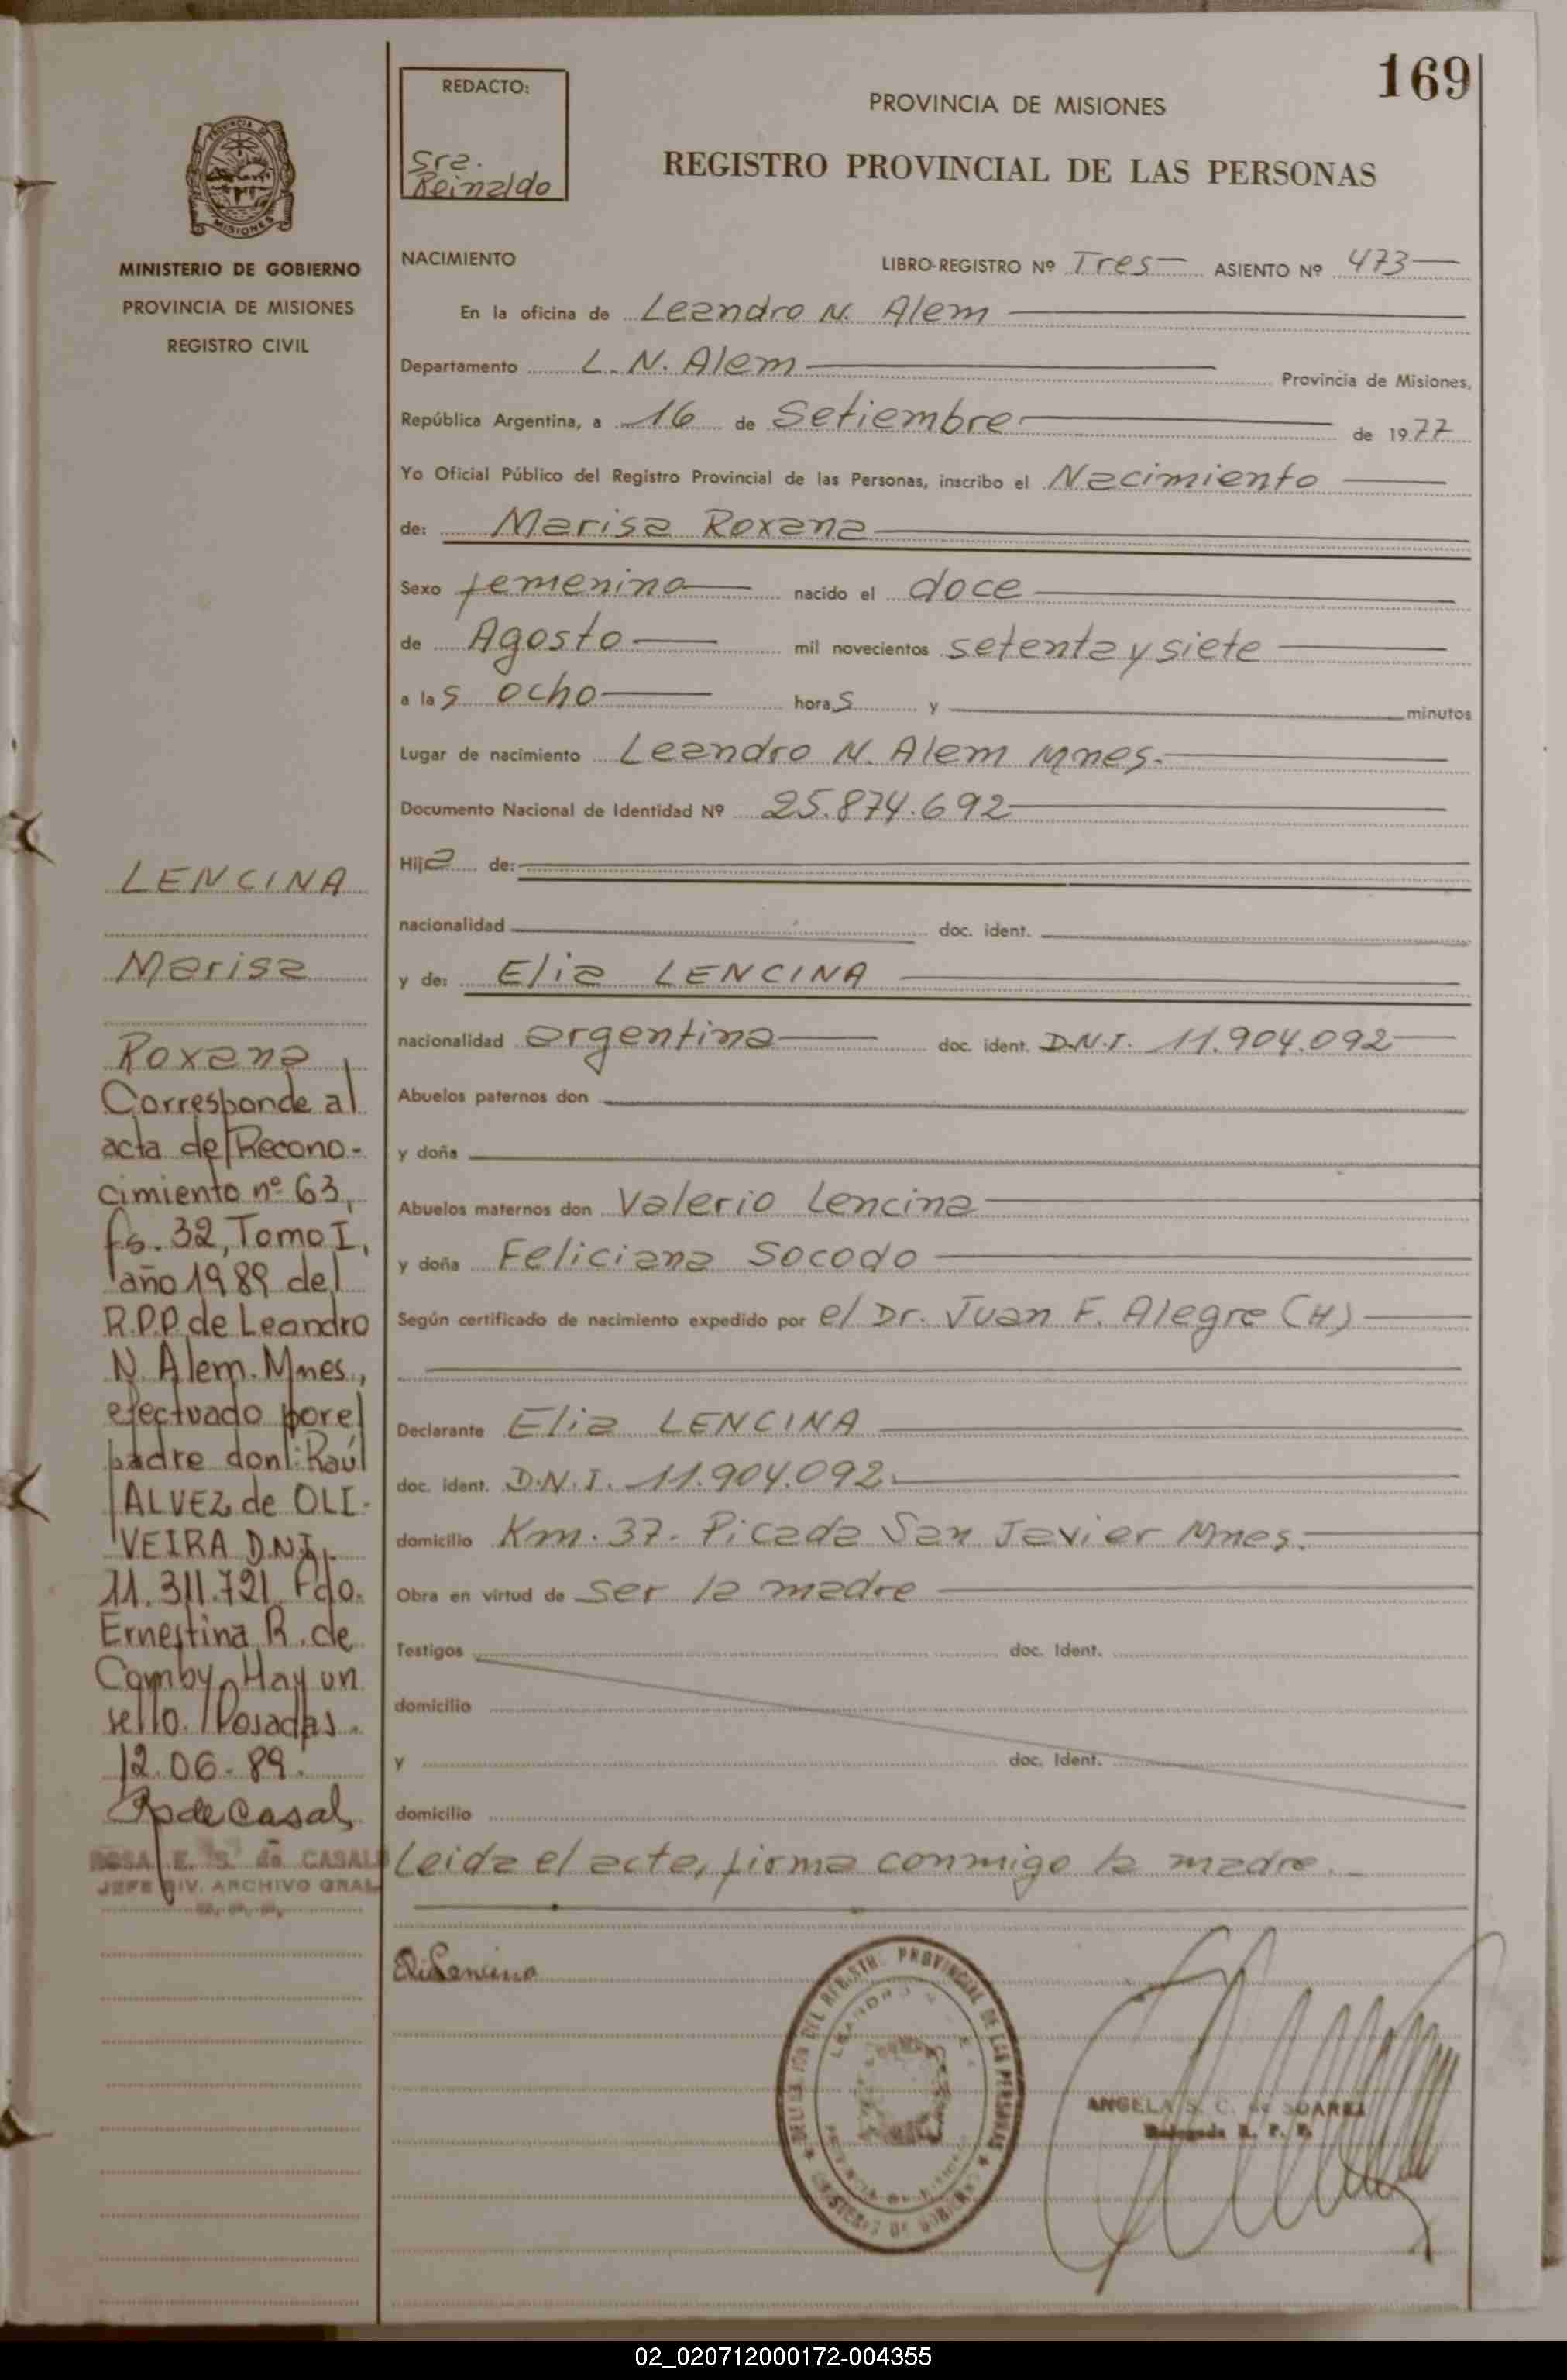 169
REDACTO:
Sra.
Reinaldo
PROVINCIA DE MISIONES
REGISTRO PROVINCIAL DE LAS PERSONAS
MISIONES
MINISTERIO DE GOBIERNO
PROVINCIA DE MISIONES
REGISTRO CIVIL
NACIMIENTO
LIBRO-REGISTRO Nº Tres ASIENTO Nº 473
En la oficina de Leandro N. Alem
Departamento L. N. Alem Provincia de Misiones,
República Argentina, a 16 de Setiembre de 1977
Yo Oficial Público del Registro Provincial de las Personas, inscribo el Nacimiento
de: Marisa Roxana
Sexo femenino nacido el doce
de Agosto mil novecientos setenta y siete
a las ocho horas y minutos
Lugar de nacimiento Leandro N. Alem Mnes.
Documento Nacional de Identidad Nº 25.874.692
Hija de:
nacionalidad doc. ident.
y de: Elia LENCINA
nacionalidad argentina doc. ident. D.N.I. 11.904.092
Abuelos paternos don
y doña
Abuelos maternos don Valerio Lencina
y doña Feliciana Socodo
Según certificado de nacimiento expedido por el Dr. Juan F. Alegre (H)
Declarante Elia LENCINA
doc. ident. D.N.I. 11.904.092
domicilio Km. 37. Picada San Javier Mnes.
Obra en virtud de ser la madre
Testigos doc. Ident.
domicilio
y doc. Ident.
domicilio
Leida el acta, firma conmigo la madre.
LENCINA
Marisa
Roxana
Corresponde al
acta de Recono-
cimiento nº 63,
fs. 32, Tomo I,
año 1989 del
R.P.P. de Leandro
N. Alem. Mnes.,
efectuado por el
padre don: Raúl
ALVEZ de OLI-
VEIRA D.N.I.
11.311.721. Fdo.
Ernestina R. de
Comby. Hay un
sello. Posadas.
12.06.89.
de Casal
ROSA E. S. de CASAL
JEFE DIV. ARCHIVO GRAL
R. P. P.
DEL REGISTR. PROVINCIAL DE LAS PERSONAS
MINISTERIO DE GOBIERNO
LEANDRO N.
PROVINCIA DE MISIONES
ANGELA S. C. de SOAREZ
Delegada R. P. P.
02_020712000172-004355